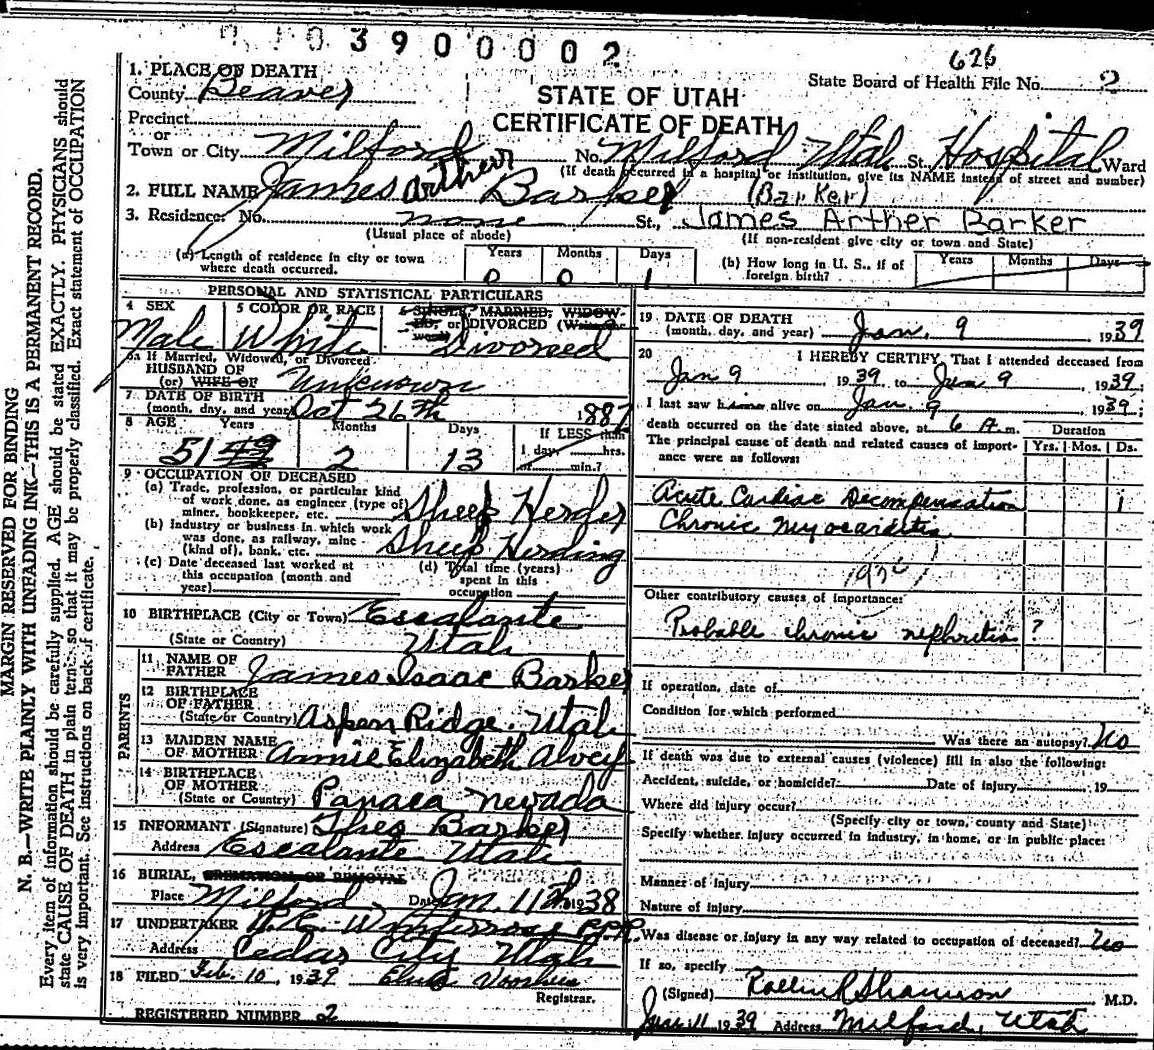 3900002
626
State Board of Health File No. 2
STATE OF UTAH
CERTIFICATE OF DEATH
1. PLACE OF DEATH
County Beaver
Precinct
or
Town or City Milford No. Milford Utah St. Hospital Ward
(If death occurred in a hospital or institution, give its NAME instead of street and number)
2. FULL NAME James Arther Barker (Barker)
3. Residence. No. none St., James Arther Barker
(Usual place of abode) (If non-resident give city or town and State)
(a) Length of residence in city or town where death occurred. Years 0 Months 0 Days 1
(b) How long in U. S., if of foreign birth? Years Months Days
PERSONAL AND STATISTICAL PARTICULARS
4 SEX Male
5 COLOR OR RACE White
6 SINGLE, MARRIED, WIDOWED, or DIVORCED Divorced
6a If Married, Widowed, or Divorced
HUSBAND OF
(or) WIFE OF Unknown
7 DATE OF BIRTH
(month, day, and year) Oct 26th 1887
8 AGE Years 51 49 Months 2 Days 13 If LESS than
1 day, hrs.
or min.?
9 OCCUPATION OF DECEASED
(a) Trade, profession, or particular kind
of work done, as engineer (type of
miner, bookkeeper, etc. Sheep Herder
(b) Industry or business in which work
was done, as railway, mine
(kind of), bank, etc. Sheep Herding
(c) Date deceased last worked at
this occupation (month and
year)
(d) Total time (years)
spent in this
occupation
10 BIRTHPLACE (City or Town) Escalante
(State or Country) Utah
PARENTS
11 NAME OF
FATHER James Isaac Barker
12 BIRTHPLACE
OF FATHER
(State or Country) Aspen Ridge, Utah
13 MAIDEN NAME
OF MOTHER Annie Elizabeth Alvey
14 BIRTHPLACE
OF MOTHER
(State or Country) Panaca Nevada
15 INFORMANT (Signature) Barker
Address Escalante Utah
16 BURIAL, CREMATION, OR REMOVAL
Place Milford Date Jan. 11th 1938
17 UNDERTAKER
Address Cedar City Utah
18 FILED Feb. 10, 1939
Registrar.
REGISTERED NUMBER 2
19 DATE OF DEATH
(month, day, and year) Jan. 9 1939
20 I HEREBY CERTIFY, That I attended deceased from
Jan 9 1939, to Jan 9 1939
I last saw him alive on Jan. 9 1939;
death occurred on the date stated above, at 6 A. m.
The principal cause of death and related causes of import-
ance were as follows:
Duration
Yrs. Mos. Ds.
Acute Cardiac Decompensation 1
Chronic Myocarditis
Other contributory causes of importance:
Probable chronic nephritis ?
If operation, date of
Condition for which performed
Was there an autopsy? No
If death was due to external causes (violence) fill in also the following:
Accident, suicide, or homicide? Date of injury 19
Where did injury occur?
(Specify city or town, county and State)
Specify whether injury occurred in industry, in home, or in public place:
Manner of Injury
Nature of Injury
Was disease or injury in any way related to occupation of deceased? No
If so, specify
(Signed) Shannon M.D.
Jan. 11 1939 Address Milford, Utah
MARGIN RESERVED FOR BINDING
N. B.—WRITE PLAINLY WITH UNFADING INK—THIS IS A PERMANENT RECORD.
Every item of information should be carefully supplied. AGE should be stated EXACTLY. PHYSICIANS should
state CAUSE OF DEATH in plain terms so that it may be properly classified. Exact statement of OCCUPATION
is very important. See instructions on back of certificate.